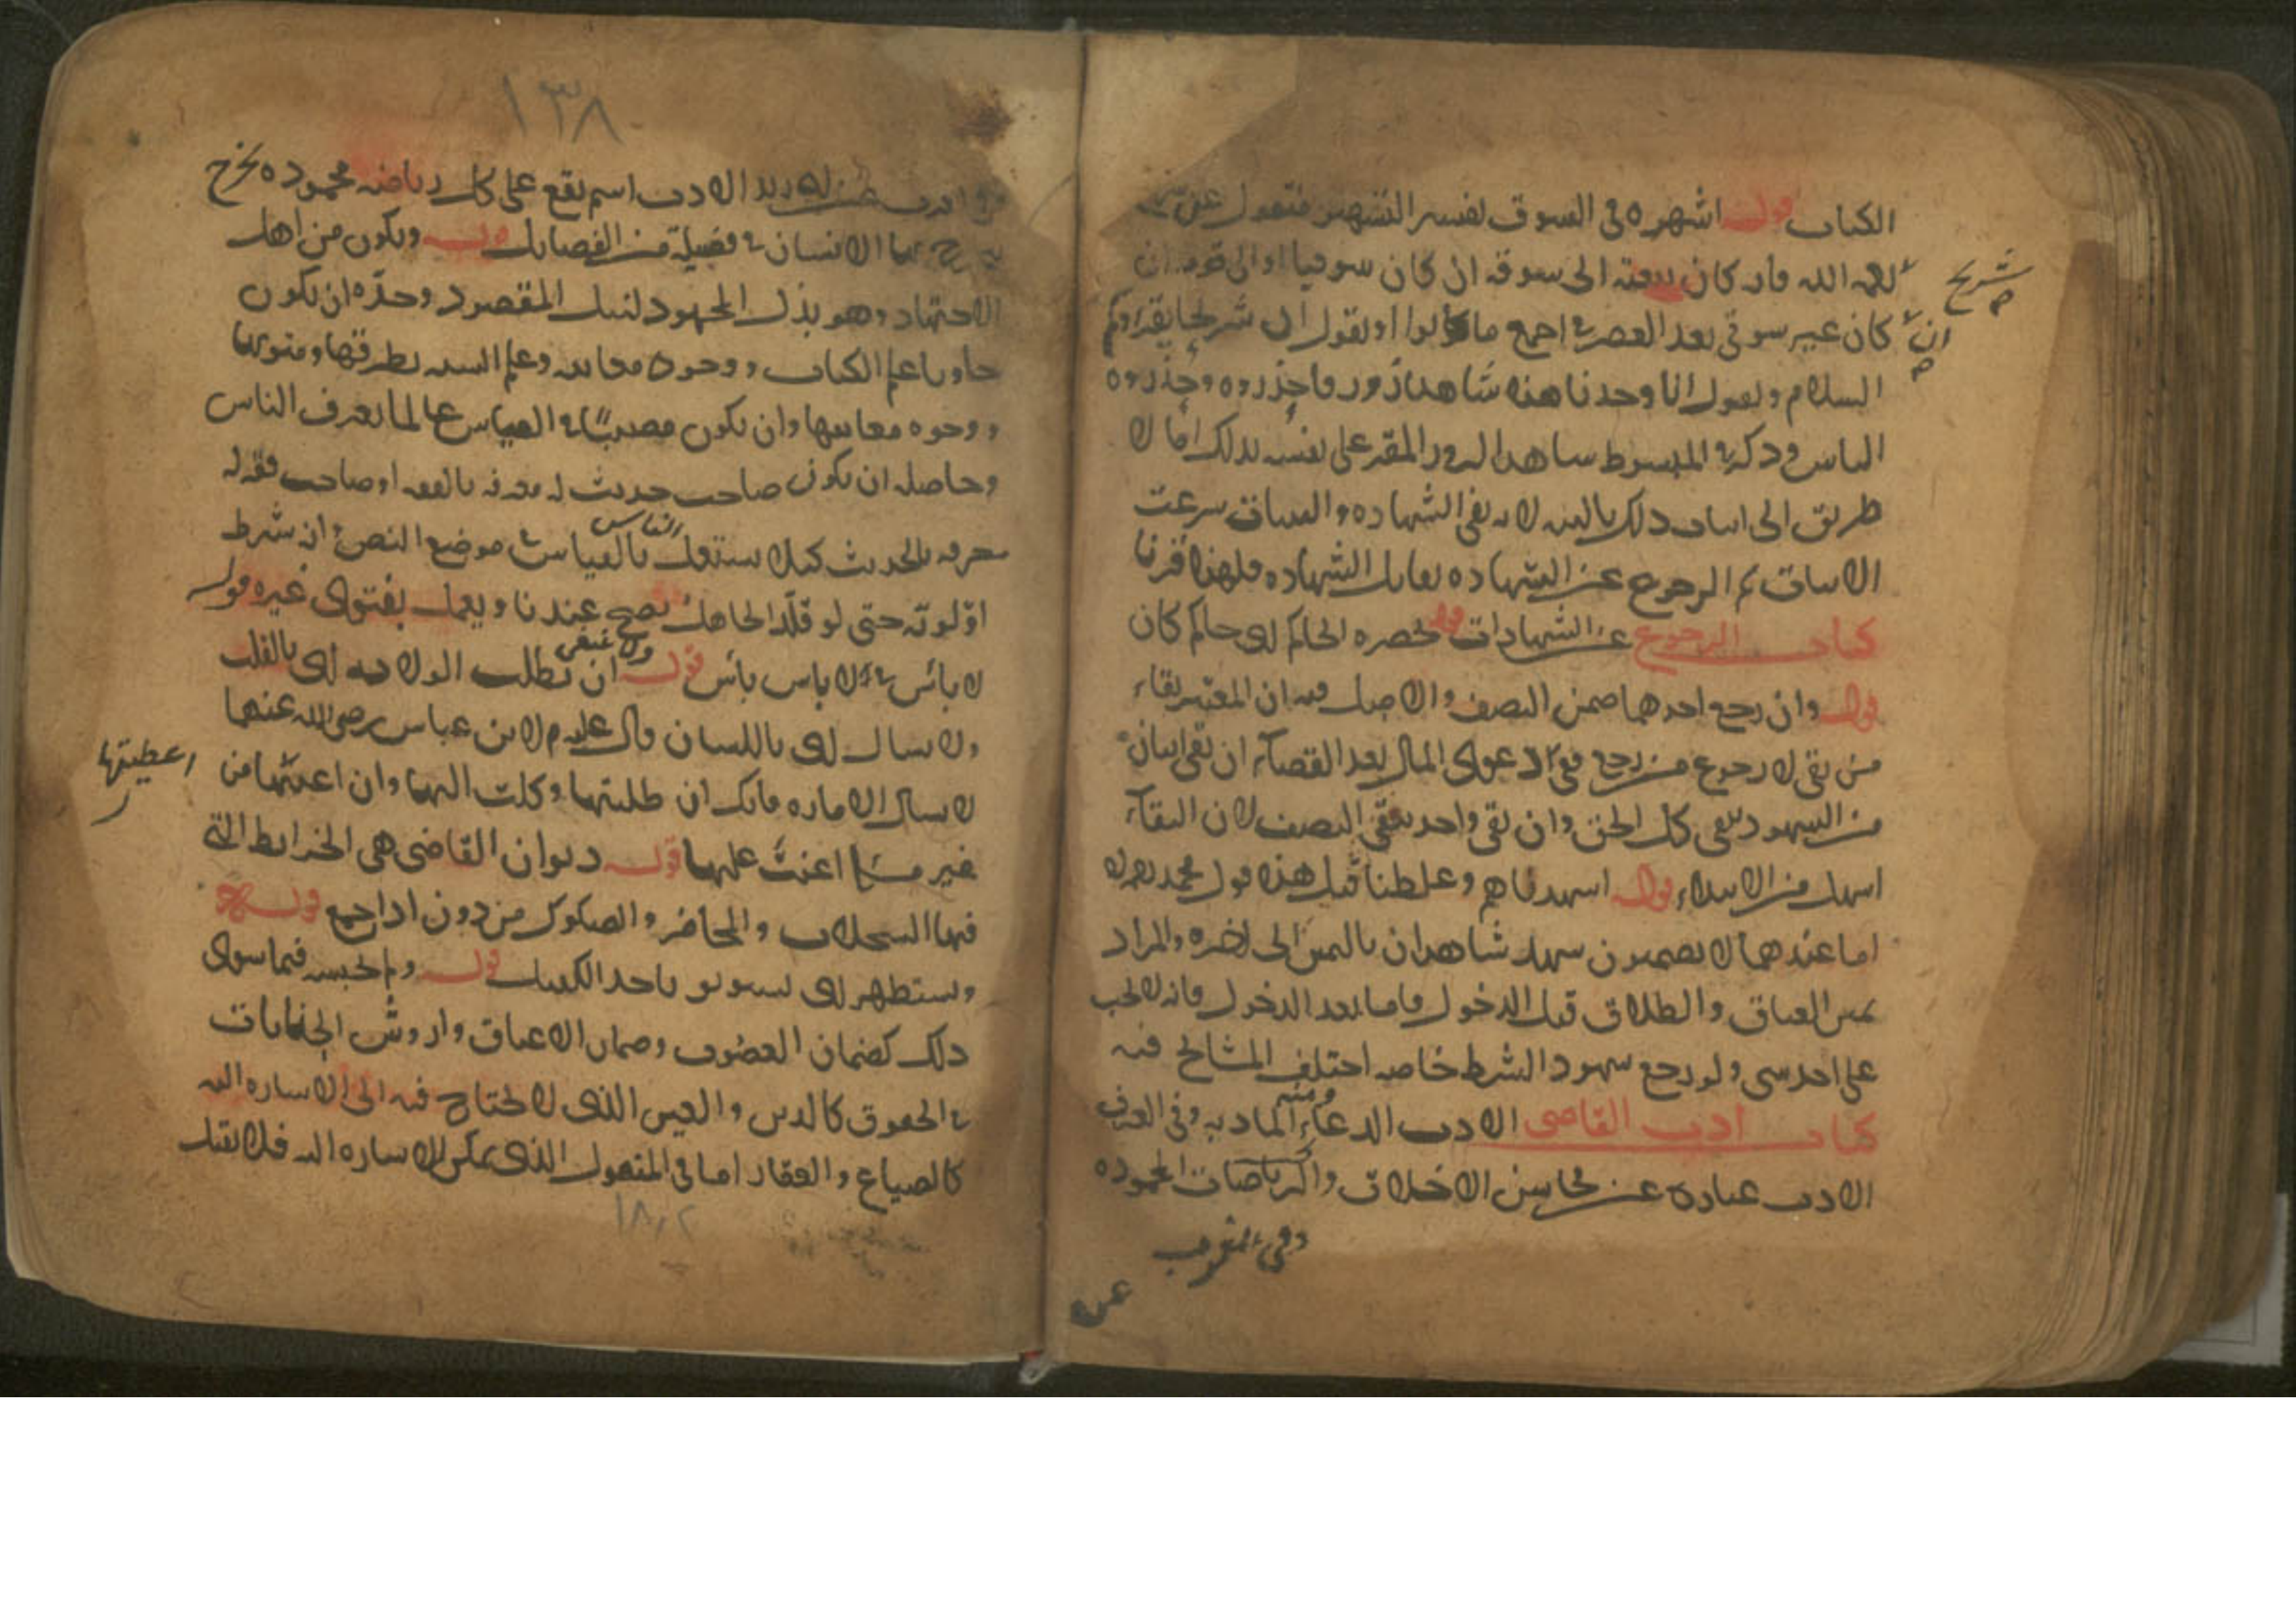 الكتاب قوله اشهره في السوق تفسير التشهير منقول عن
شريح
رحمه الله فانه كان يبعثه الى سوقه ان كان سوقيا او الى قومه ان
كان غير سوقي بعد العصر اجمع ما كانوا ويقول ان شريحا يقرأكم
السلام ويقول انا وجدنا هذا شاهد زور فاحذروه وحذروه
الناس وذكر في المبسوط شاهد الزور المقر على نفسه بذلك اما لا
طريق الى اثبات ذلك بالبينة لانه نفي الشهادة والبينات شرعت
للاثبات ثم الرجوع عن الشهادة يقابل الشهادة فلهذا قرنا
كتاب الرجوع عن الشهادات قوله بحضرة الحاكم اى حاكم كان
قوله وان رجع احدهما ضمن النصف والاصل فيه ان المعتبر بقاء
من بقي لا رجوع من رجع ففي دعوى المال بعد القضاء ان بقي اثنان
من الشهود يبقى كل الحق وان بقي واحد يبقى النصف لان البقاء
اسهل من الابتداء قوله اشهدناهم وغلطنا قيل هذا قول محمد
اما عندهما لا يضمنون شهد شاهدان باليمين الى اخره والمراد
يمين العتاق والطلاق قبل الدخول فاما بعد الدخول فانه لا يجب
على احد شى ولو رجع شهود الشرط خاصة اختلف المشايخ فيه
كتاب ادب القاضى الادب الدعاء ومنه المادبة وفي العرف
الادب عبارة عن محاسن الاخلاق والرياضات المحمودة
وفي المغرب
١٣٨
الادب اسم يقع على كل رياضة محمودة يخرج
بها الانسان في فضيلة من الفضايل قوله ويكون من اهل
الاجتهاد وهو بذل المجهود لنيل المقصود وحده ان يكون
حاويا علم الكتاب ووجوه معانيه وعلم السنة بطرقها ومتونها
ووجوه معانيها وان يكون مصيبا في القياس عالما بعرف الناس
وحاصله ان يكون صاحب حديث له معرفة بالفقه او صاحب فقه له
معرفة بالحديث كيلا يشتغل الناس بالقياس في موضع النص انه شرط
اولوية حتى لو قلد الجاهل يصح عندنا ويعمل بفتوى غيره قوله
لا بأس لا باس بأس قوله ولا ينبغى ان يطلب الولاية اى بالقلب
ولا يسال اى باللسان قال عليه م لابن عباس رضى الله عنهما
لا تسال الامارة فانك ان طلبتها وكلت اليها وان اعطيتها من
اعطيتها
غير مسئلة اعنت عليها قوله ديوان القاضى هى الخرايط التى
فيها السجلات والمحاضر والصكوك من دون اذا جمع قوله
ويستظهر اى يستوثق ياخذ الكفيل قوله ولم يحبسه فيما سوى
ذلك كضمان الغصوب وضمان الاعتاق واروش الجنايات
في الحقوق كالدين والعين الذى لا يحتاج فيه الى الاشارة اليه
كالضياع والعقار اما في المنقول الذى يمكن الاشارة اليه فلا يقبل